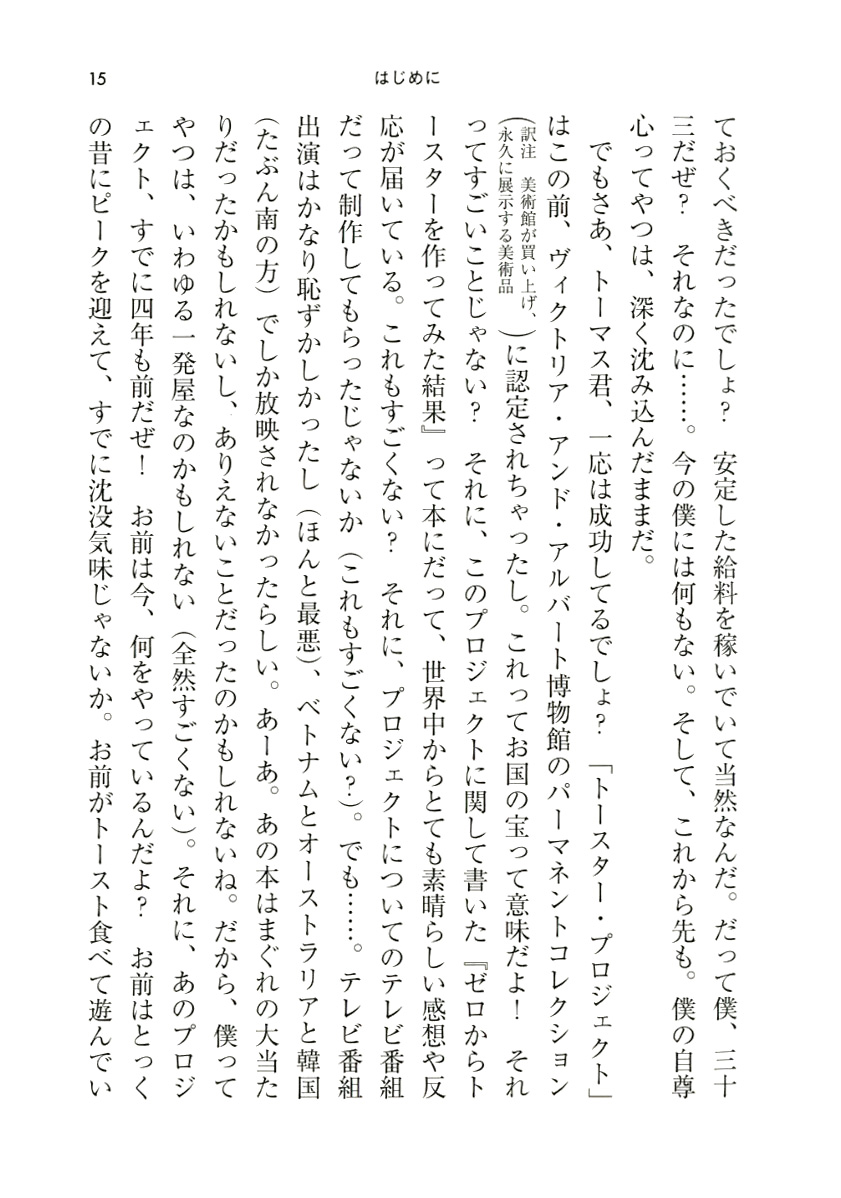 15
はじめに
ておくべきだったでしょ？　安定した給料を稼いでいて当然なんだ。だって僕、三十
三だぜ？　それなのに……。今の僕には何もない。そして、これから先も。僕の自尊
心ってやつは、深く沈み込んだままだ。
　でもさあ、トーマス君、一応は成功してるでしょ？　「トースター・プロジェクト」
はこの前、ヴィクトリア・アンド・アルバート博物館のパーマネントコレクション
（訳注　美術館が買い上げ、永久に展示する美術品）に認定されちゃったし。これってお国の宝って意味だよ！　それ
ってすごいことじゃない？　それに、このプロジェクトに関して書いた『ゼロからト
ースターを作ってみた結果』って本にだって、世界中からとても素晴らしい感想や反
応が届いている。これもすごくない？　それに、プロジェクトについてのテレビ番組
だって制作してもらったじゃないか（これもすごくない？）。でも……。テレビ番組
出演はかなり恥ずかしかったし（ほんと最悪）、ベトナムとオーストラリアと韓国
（たぶん南の方）でしか放映されなかったらしい。あーあ。あの本はまぐれの大当た
りだったかもしれないし、ありえないことだったのかもしれないね。だから、僕って
やつは、いわゆる一発屋なのかもしれない（全然すごくない）。それに、あのプロジ
ェクト、すでに四年も前だぜ！　お前は今、何をやっているんだよ？　お前はとっく
の昔にピークを迎えて、すでに沈没気味じゃないか。お前がトースト食べて遊んでい